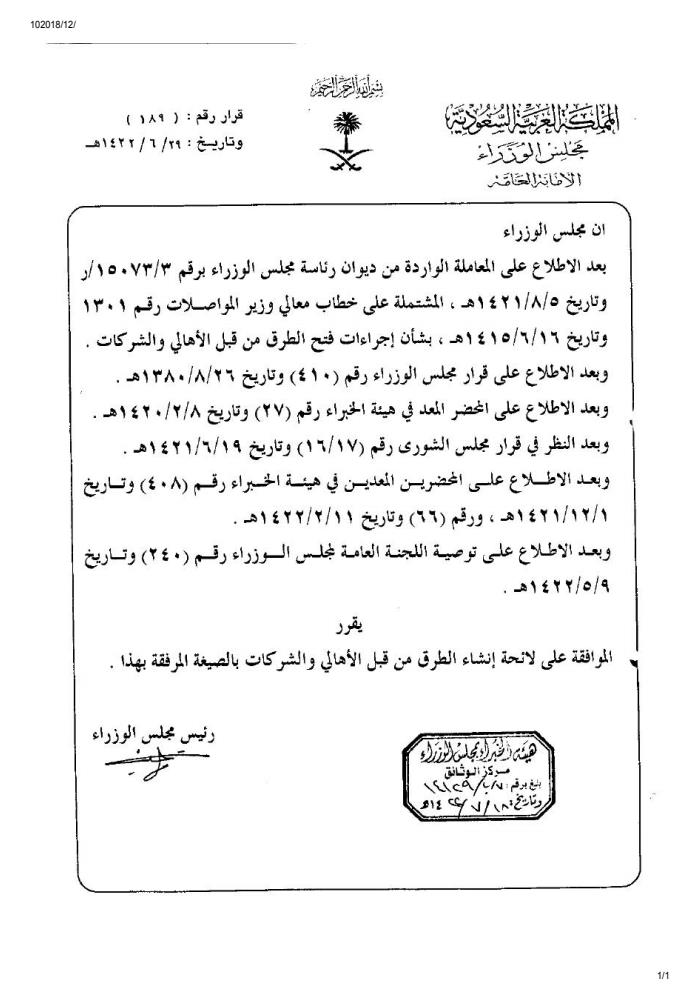 102018/12/
بسم الله الرحمن الرحيم
المملكة العربية السعودية
مجلس الوزراء
الأمانة العامة
قرار رقم : ( ١٨٩ )
وتاريخ : ١٤٢٢/٦/٢٩هـ
ان مجلس الوزراء
بعد الاطلاع على المعاملة الواردة من ديوان رئاسة مجلس الوزراء برقم ١٥٠٧٣/٣/ر
وتاريخ ١٤٢١/٨/٥هـ ، المشتملة على خطاب معالي وزير المواصلات رقم ١٣٠١
وتاريخ ١٤١٥/٦/١٦هـ ، بشأن إجراءات فتح الطرق من قبل الأهالي والشركات .
وبعد الاطلاع على قرار مجلس الوزراء رقم (٤١٠) وتاريخ ١٣٨٠/٨/٢٦هـ .
وبعد الاطلاع على المحضر المعد في هيئة الخبراء رقم (٢٧) وتاريخ ١٤٢٠/٢/٨هـ .
وبعد النظر في قرار مجلس الشورى رقم (١٦/١٧) وتاريخ ١٤٢١/٦/١٩هـ .
وبعد الاطلاع على المحضرين المعدين في هيئة الخبراء رقم (٤٠٨) وتاريخ
١٤٢١/١٢/١هـ ، ورقم (٦٦) وتاريخ ١٤٢٢/٢/١١هـ .
وبعد الاطلاع على توصية اللجنة العامة لمجلس الوزراء رقم (٢٤٠) وتاريخ
١٤٢٢/٥/٩هـ .
يقرر
الموافقة على لائحة إنشاء الطرق من قبل الأهالي والشركات بالصيغة المرفقة بهذا .
رئيس مجلس الوزراء
هيئة الخبراء بمجلس الوزراء
مركز الوثائق
بلغ برقم :
وتاريخ : ١٤٢٢/٧/١٨هـ
1/1